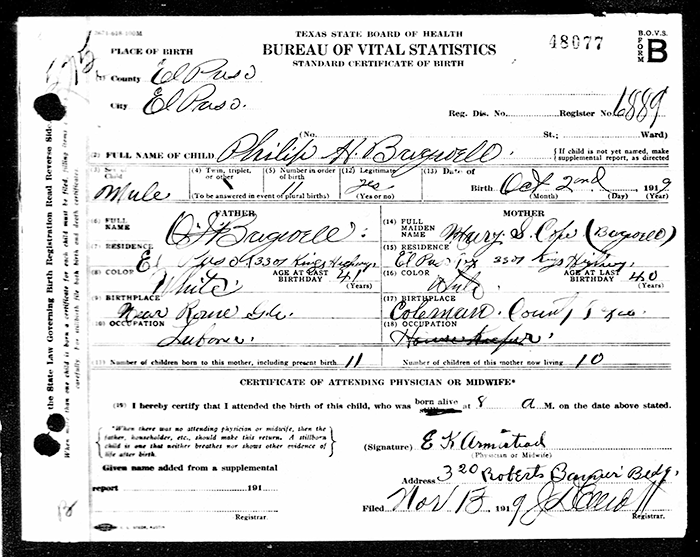 TEXAS STATE BOARD OF HEALTH
BUREAU OF VITAL STATISTICS
STANDARD CERTIFICATE OF BIRTH
48077
B.O.V.S. FORM B
575
PLACE OF BIRTH
County El Paso
City El Paso.
Reg. Dis. No. Register No. 6889
(No. St.; Ward)
(2) FULL NAME OF CHILD Philip H. Bagwell.
{ If child is not yet named, make supplemental report, as directed
(3) Sex of Child Male
(4) Twin, triplet, or other
(5) Number in order of birth 11
(To be answered in event of plural births)
(12) Legitimate yes (Yes or no)
(13) Date of Birth Oct 2nd 1919
(Month) (Day) (Year)
FATHER
(6) FULL NAME Bagwell.
(7) RESIDENCE El Paso 3301 Kings Highway.
(8) COLOR White AGE AT LAST BIRTHDAY 41 (Years)
(9) BIRTHPLACE Near Rome
(10) OCCUPATION Laborer
MOTHER
(14) FULL MAIDEN NAME Mary S. Cope (Bagwell)
(15) RESIDENCE El Paso Tex 3301 Kings Highway
(16) COLOR White AGE AT LAST BIRTHDAY 40 (Years)
(17) BIRTHPLACE Coleman County Texas
(18) OCCUPATION House Keeper
(11) Number of children born to this mother, including present birth 11
Number of children of this mother now living 10
CERTIFICATE OF ATTENDING PHYSICIAN OR MIDWIFE*
I hereby certify that I attended the birth of this child, who was born alive at 8 a M. on the date above stated.
{ *When there was no attending physician or midwife, then the father, householder, etc., should make this return. A stillborn child is one that neither breathes nor shows other evidence of life after birth. }
(Signature) E K Armistead
(Physician or Midwife)
Given name added from a supplemental
report 191
Registrar.
Address 320 Roberts Banner Bldg.
Filed Nov 13 1919
Registrar.
the State Law Governing Birth Registration Read Reverse Side.